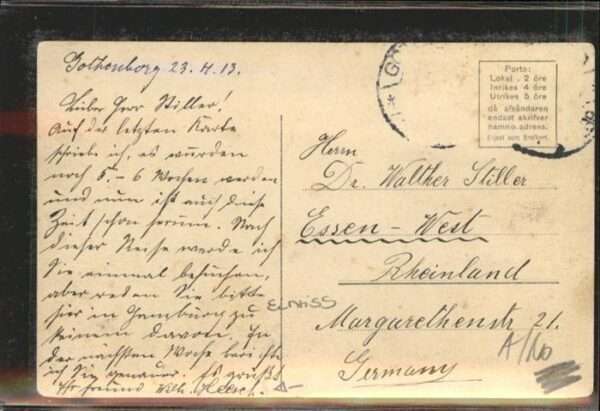 Gothenborg 23.4.13.
Lieber Herr Stiller!
Auf der letzten Karte
schrieb ich, es würden
noch 5-6 Wochen werden
und nun ist auch diese
Zeit schon herum. Nach
dieser Reise werde ich
Sie einmal besuchen,
aber reden Sie bitte
hier in Hamburg zu
keinem davon. In
der nächsten Woche berichte
ich Sie genauer. Es grüßt
Ihr Freund Wilh.
Porto:
Lokal . 2 öre
Inrikes 4 öre
Utrikes 5 öre
då afsändaren
endast skrifver
namn o. adress.
Herrn
Dr. Walther Stiller
Essen - West
Rheinland
Margarethenstr 21.
Germany